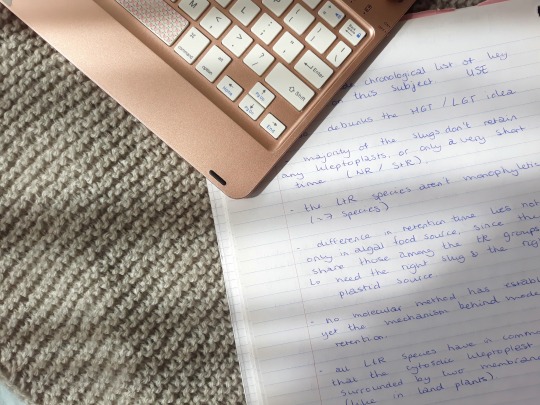 M
L
command
option
Enter
Shift
End
chronological list of key
this subject. USE
debunks the HGT / LGT idea
majority of the slugs don't retain
any kleptoplasts, or only a very short
time (NR / StR).
- the LtR species aren't monophyletic
(>7 species)
- difference in retention time lies not
only in algal food source, since the
share those among the LtR groups
↳ need the right slug & the
plastid source
- no molecular method has
yet the mechanism behind
retention.
- all LtR species have in common
that the cytosolic kleptoplast
surrounded by two
(like in land plants).